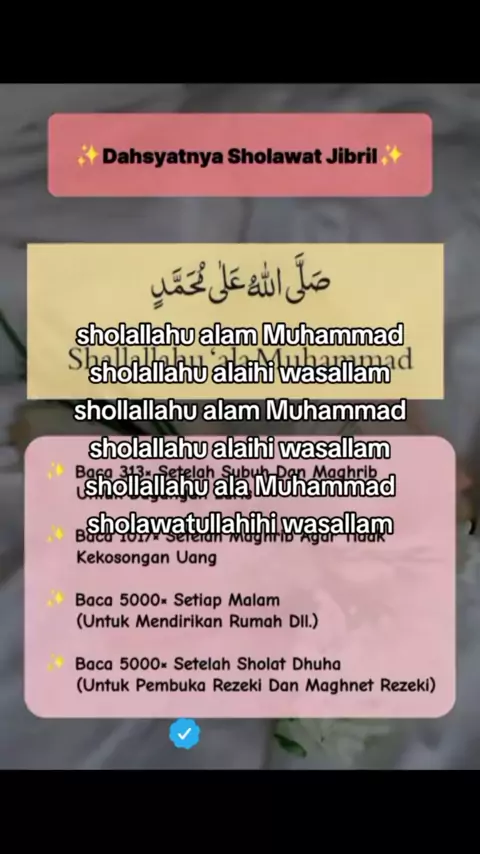 ✨Dahsyatnya Sholawat Jibril✨
صَلَّى اللهُ عَلٰى مُحَمَّدٍ
Shallallahu 'ala Muhammad
sholallahu alam Muhammad
sholallahu alaihi wasallam
shollallahu alam Muhammad
sholallahu alaihi wasallam
shollallahu ala Muhammad
sholawatullahihi wasallam
✨ Baca 313× Setelah Subuh Dan Maghrib
✨ Baca 1017× Setelah Maghrib Agar Tidak
Kekosongan Uang
✨ Baca 5000× Setiap Malam
(Untuk Mendirikan Rumah Dll.)
✨ Baca 5000× Setelah Sholat Dhuha
(Untuk Pembuka Rezeki Dan Maghnet Rezeki)